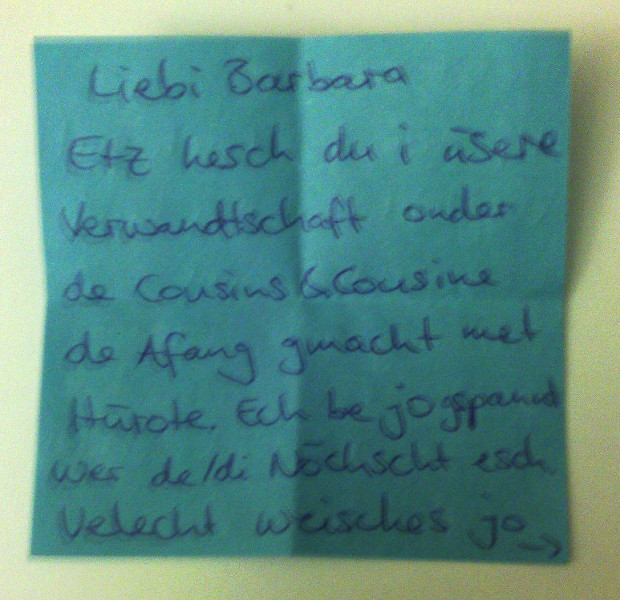 Liebi Barbara
Etz hesch du i üsere
Verwandtschaft onder
de Cousins & Cousine
de Afang gmacht met
Hürote. Ech be jo gspannt
wer de/di Nöchscht esch
Velecht weisches jo →